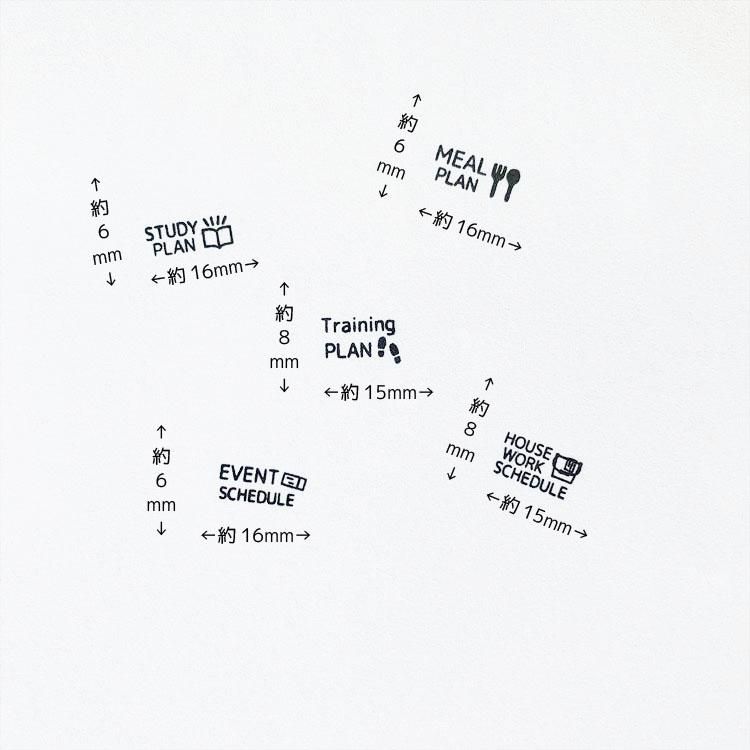 ↑
約
6
mm
↓
MEAL
PLAN
←約 16mm→
↑
約
6
mm
↓
STUDY
PLAN
←約 16mm→
↑
約
8
mm
↓
Training
PLAN
←約 15mm→
↑
約
8
mm
↓
HOUSE
WORK
SCHEDULE
←約 15mm→
↑
約
6
mm
↓
EVENT
SCHEDULE
←約 16mm→